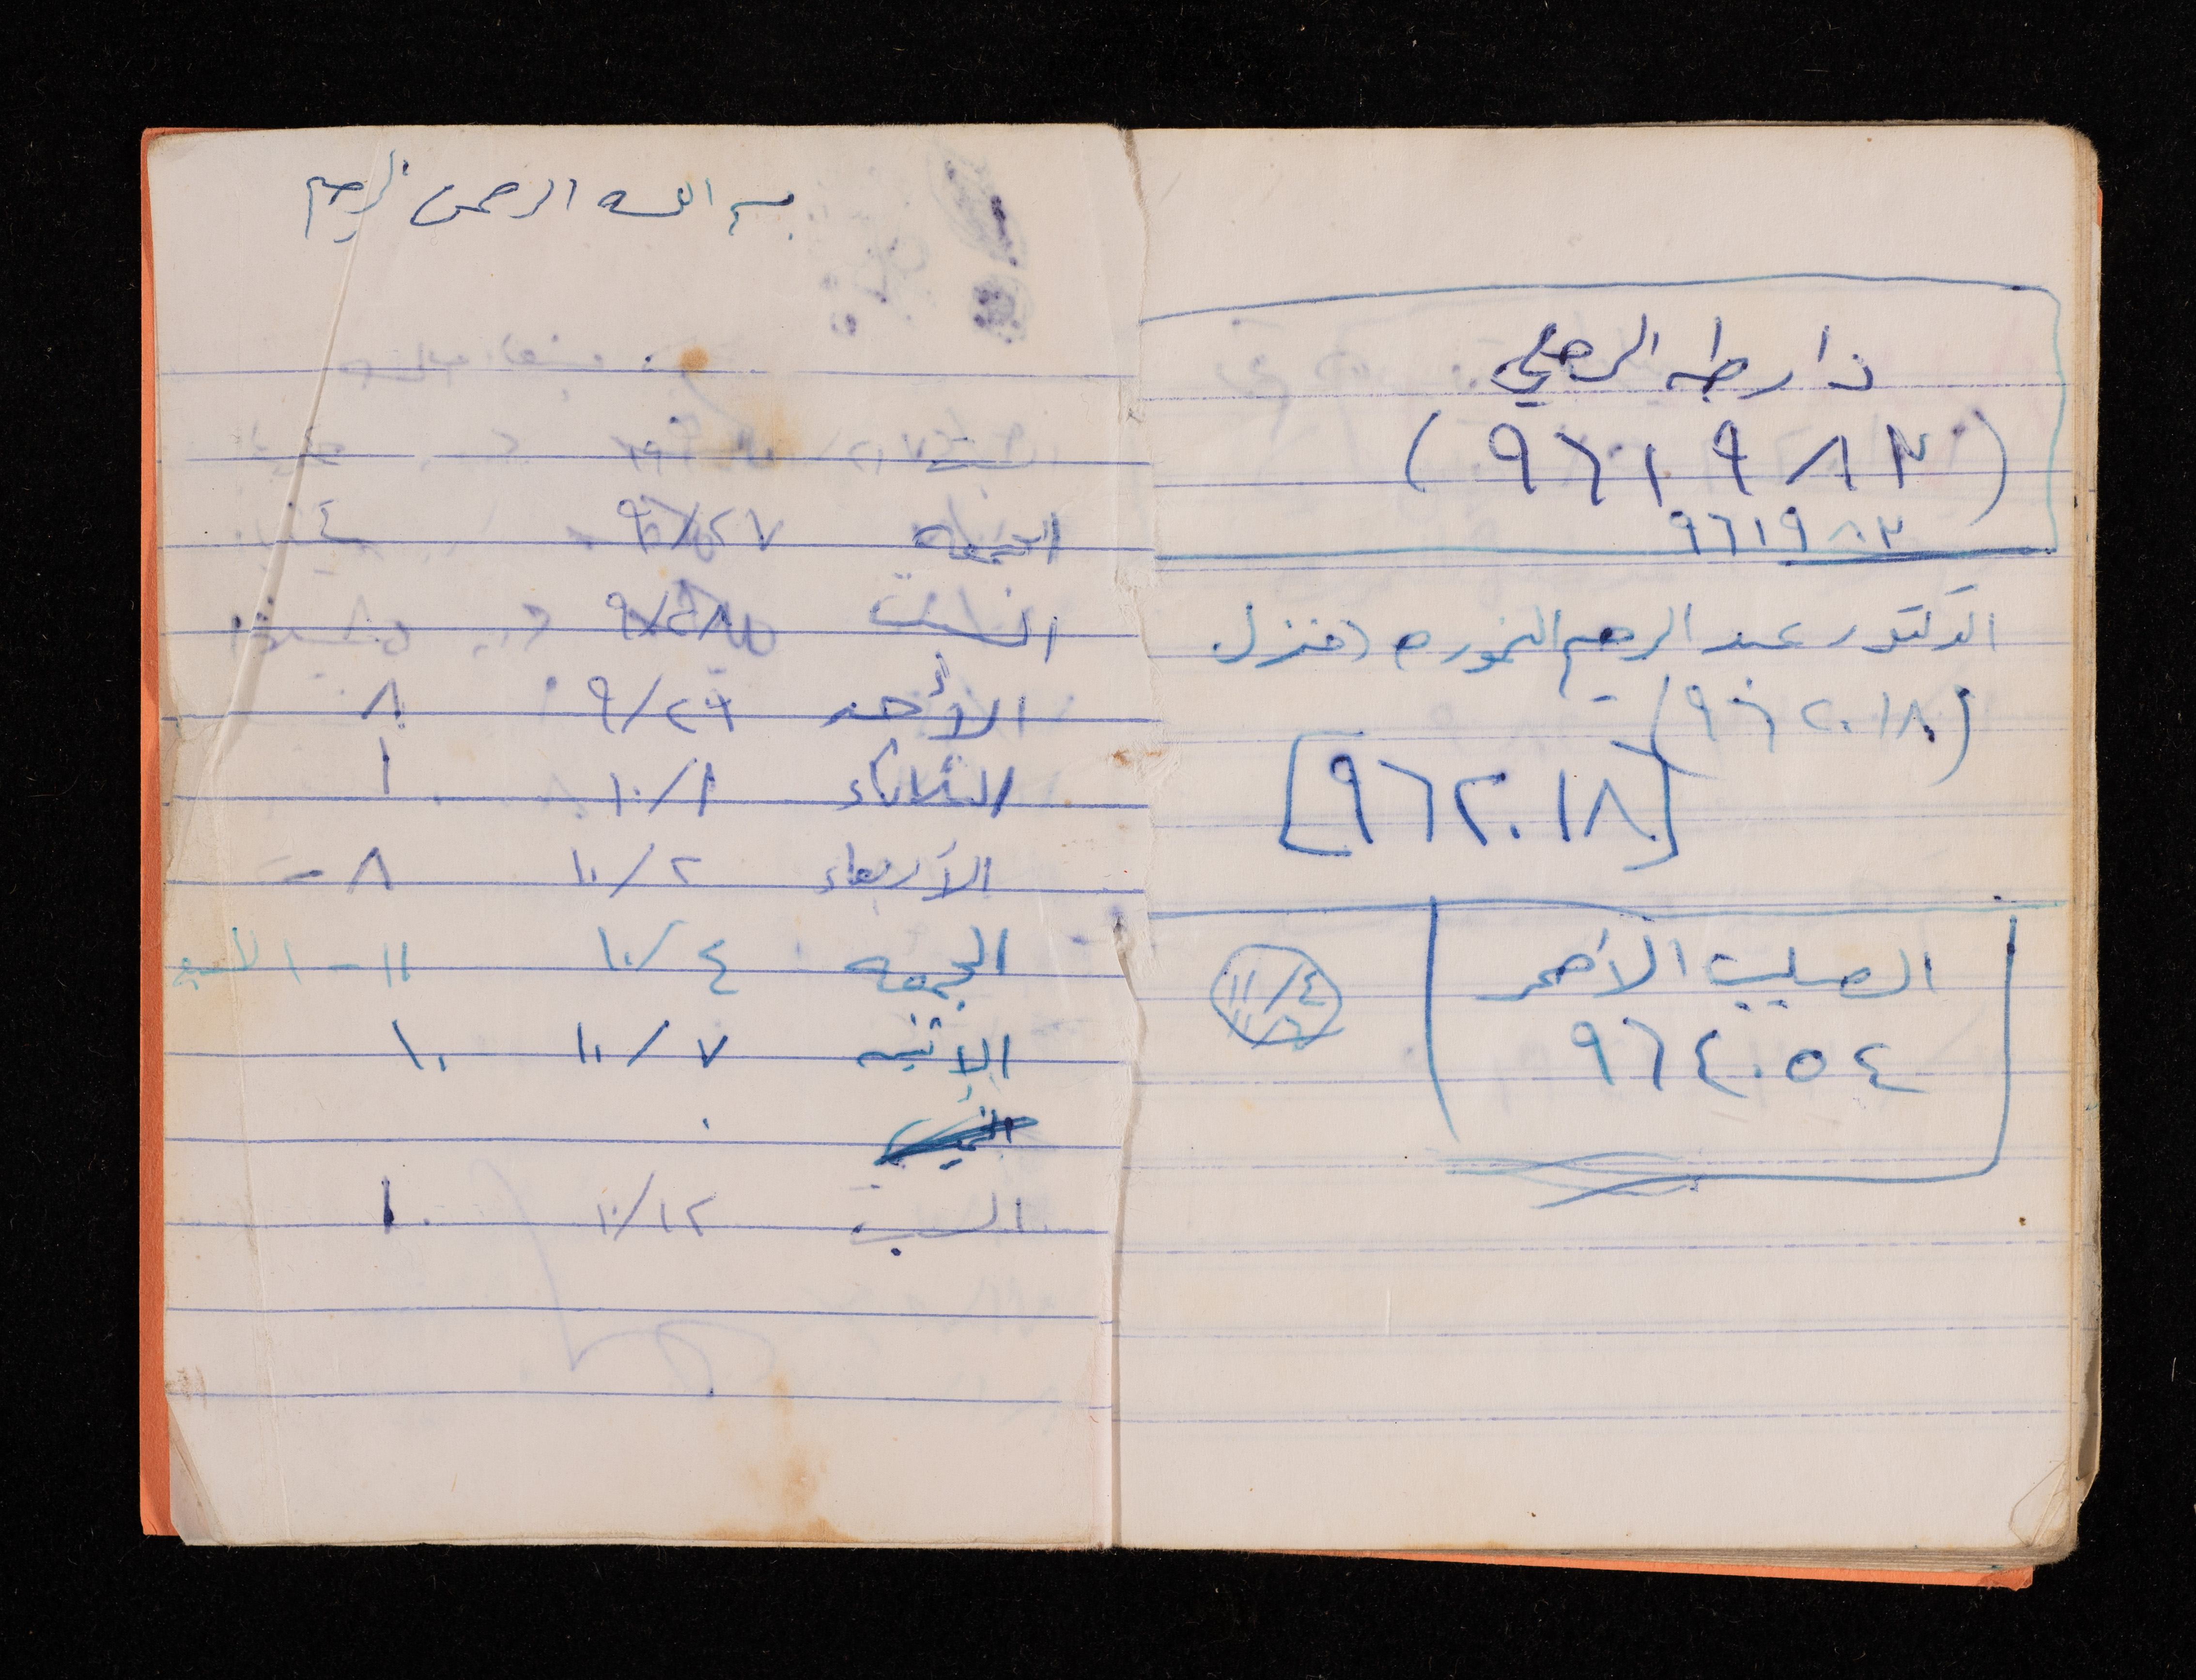 بسم الله الرحمن الرحيم
الجمعه ٩/٢٧ ٤
السبت ٩/٢٨ ٨
الأحد ٩/٢٩ ٨
الثلاثاء ١٠/١ ١
الأربعاء ١٠/٢ ٨ -
الجمعه ١٠/٤ ١١ -
الاثنين ١٠/٧ ١٠
السبت ١٠/١٢ ١
دار طه الرجبي
(٩٦١٩٨٣)
٩٦١٩٨٣
الدكتور عبد الرحيم النموره (منزل
(٩٦٢٠١٨)
[٩٦٢٠١٨]
الصليب الأحمر
٩٦٤٠٥٤
١١/٤
١١/٦